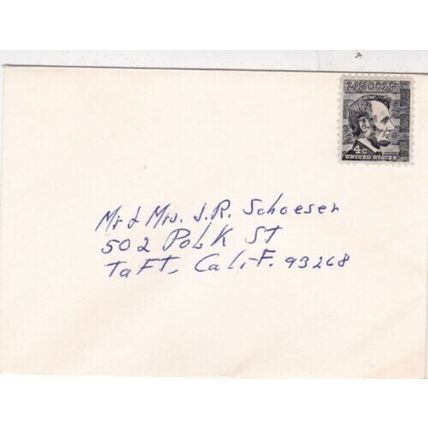 LINCOLN
4c
UNITED STATES
Mr & Mrs. J.R. Schoeser
502 Polk St
Taft, Calif. 93268